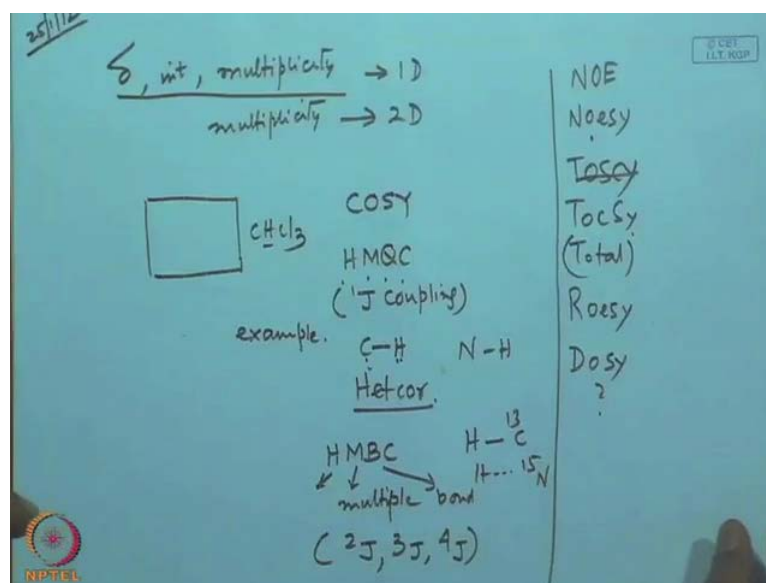 25/1/12
δ, int, multiplicity → 1D
multiplicity → 2D
CHCl3
COSY
HMQC
(¹J coupling)
example.
C–H N–H
Hetcor.
HMBC
H–¹³C
H---¹⁵N
multiple bond
(²J, ³J, ⁴J)
NOE
Noesy
Toscy
Tocsy
(Total)
Roesy
Dosy
?
© CET
I.I.T. KGP
NPTEL